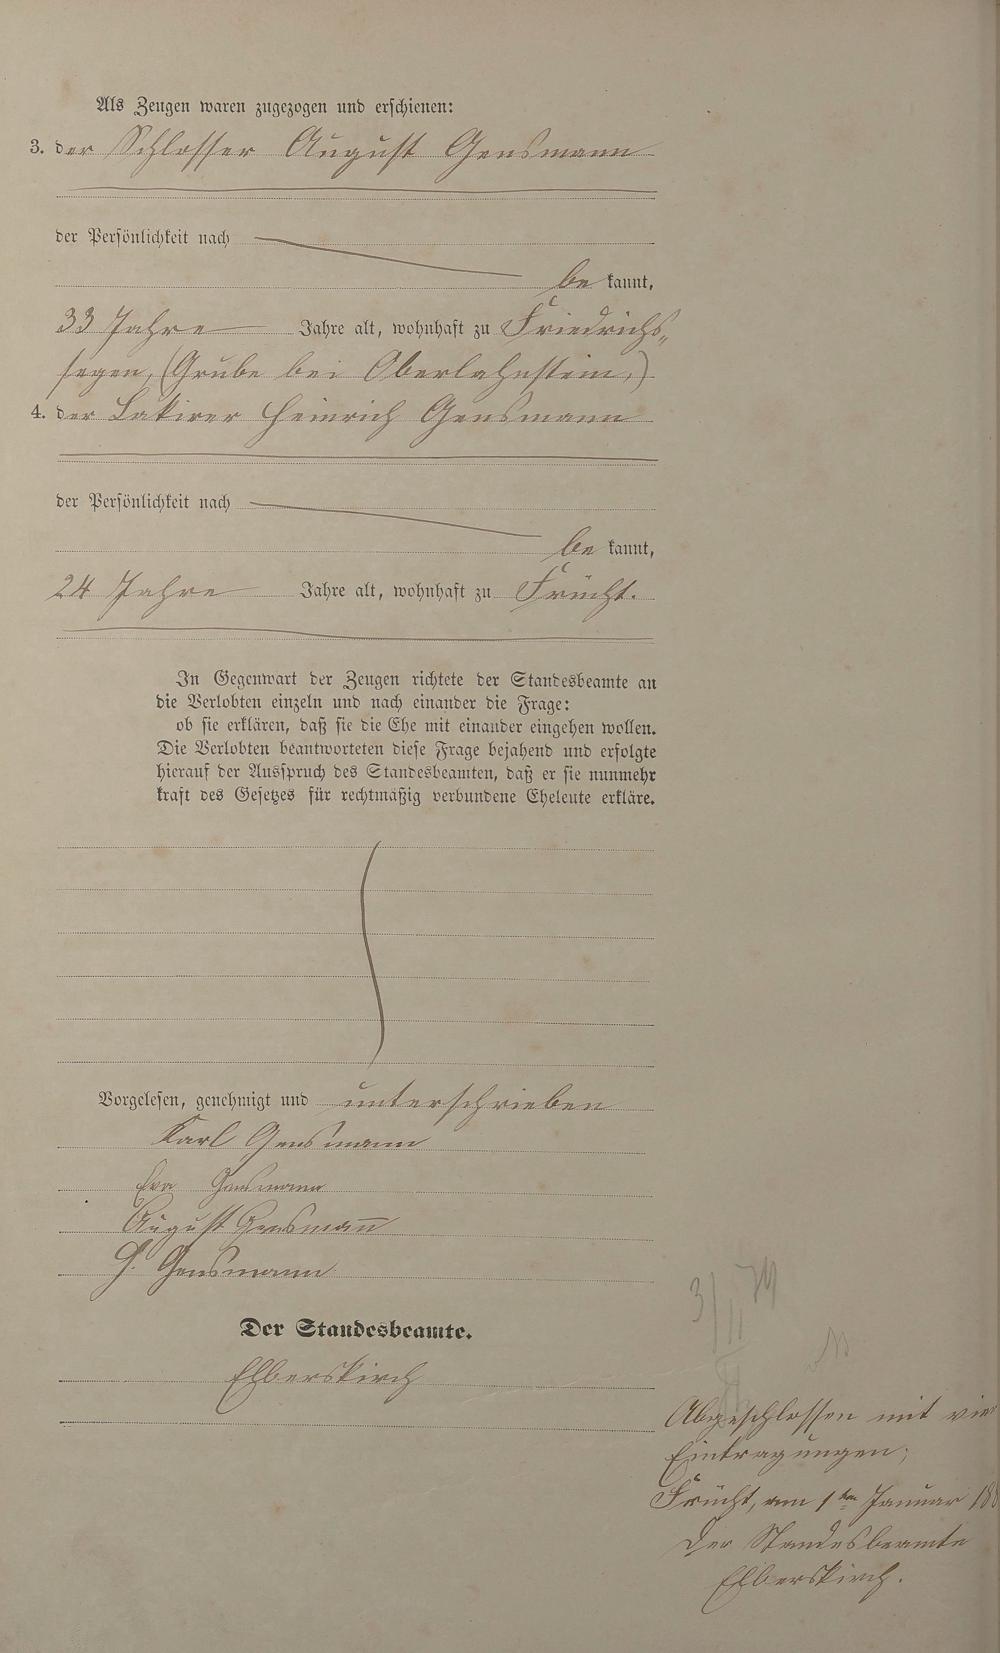 Als Zeugen waren zugezogen und erschienen:
3. der Schlosser August Gensmann
der Persönlichkeit nach
be kannt,
33 Jahre Jahre alt, wohnhaft zu Friedrichs-
segen, (Grube bei Oberlahnstein,)
4. der Lakirer Heinrich Gensmann
der Persönlichkeit nach
be kannt,
24 Jahre Jahre alt, wohnhaft zu Frücht.
In Gegenwart der Zeugen richtete der Standesbeamte an
die Verlobten einzeln und nach einander die Frage:
ob sie erklären, daß sie die Ehe mit einander eingehen wollen.
Die Verlobten beantworteten diese Frage bejahend und erfolgte
hierauf der Ausspruch des Standesbeamten, daß er sie nunmehr
kraft des Gesetzes für rechtmäßig verbundene Eheleute erkläre.
Vorgelesen, genehmigt und unterschrieben
Karl Gensmann
Eva Gensmann
August Gensmañ
H. Gensmann
Der Standesbeamte.
Elberskirch
Abgeschlossen mit vier
Eintragungen;
Frücht, am 1ten Januar 188
Der Standesbeamte
Elberskirch.